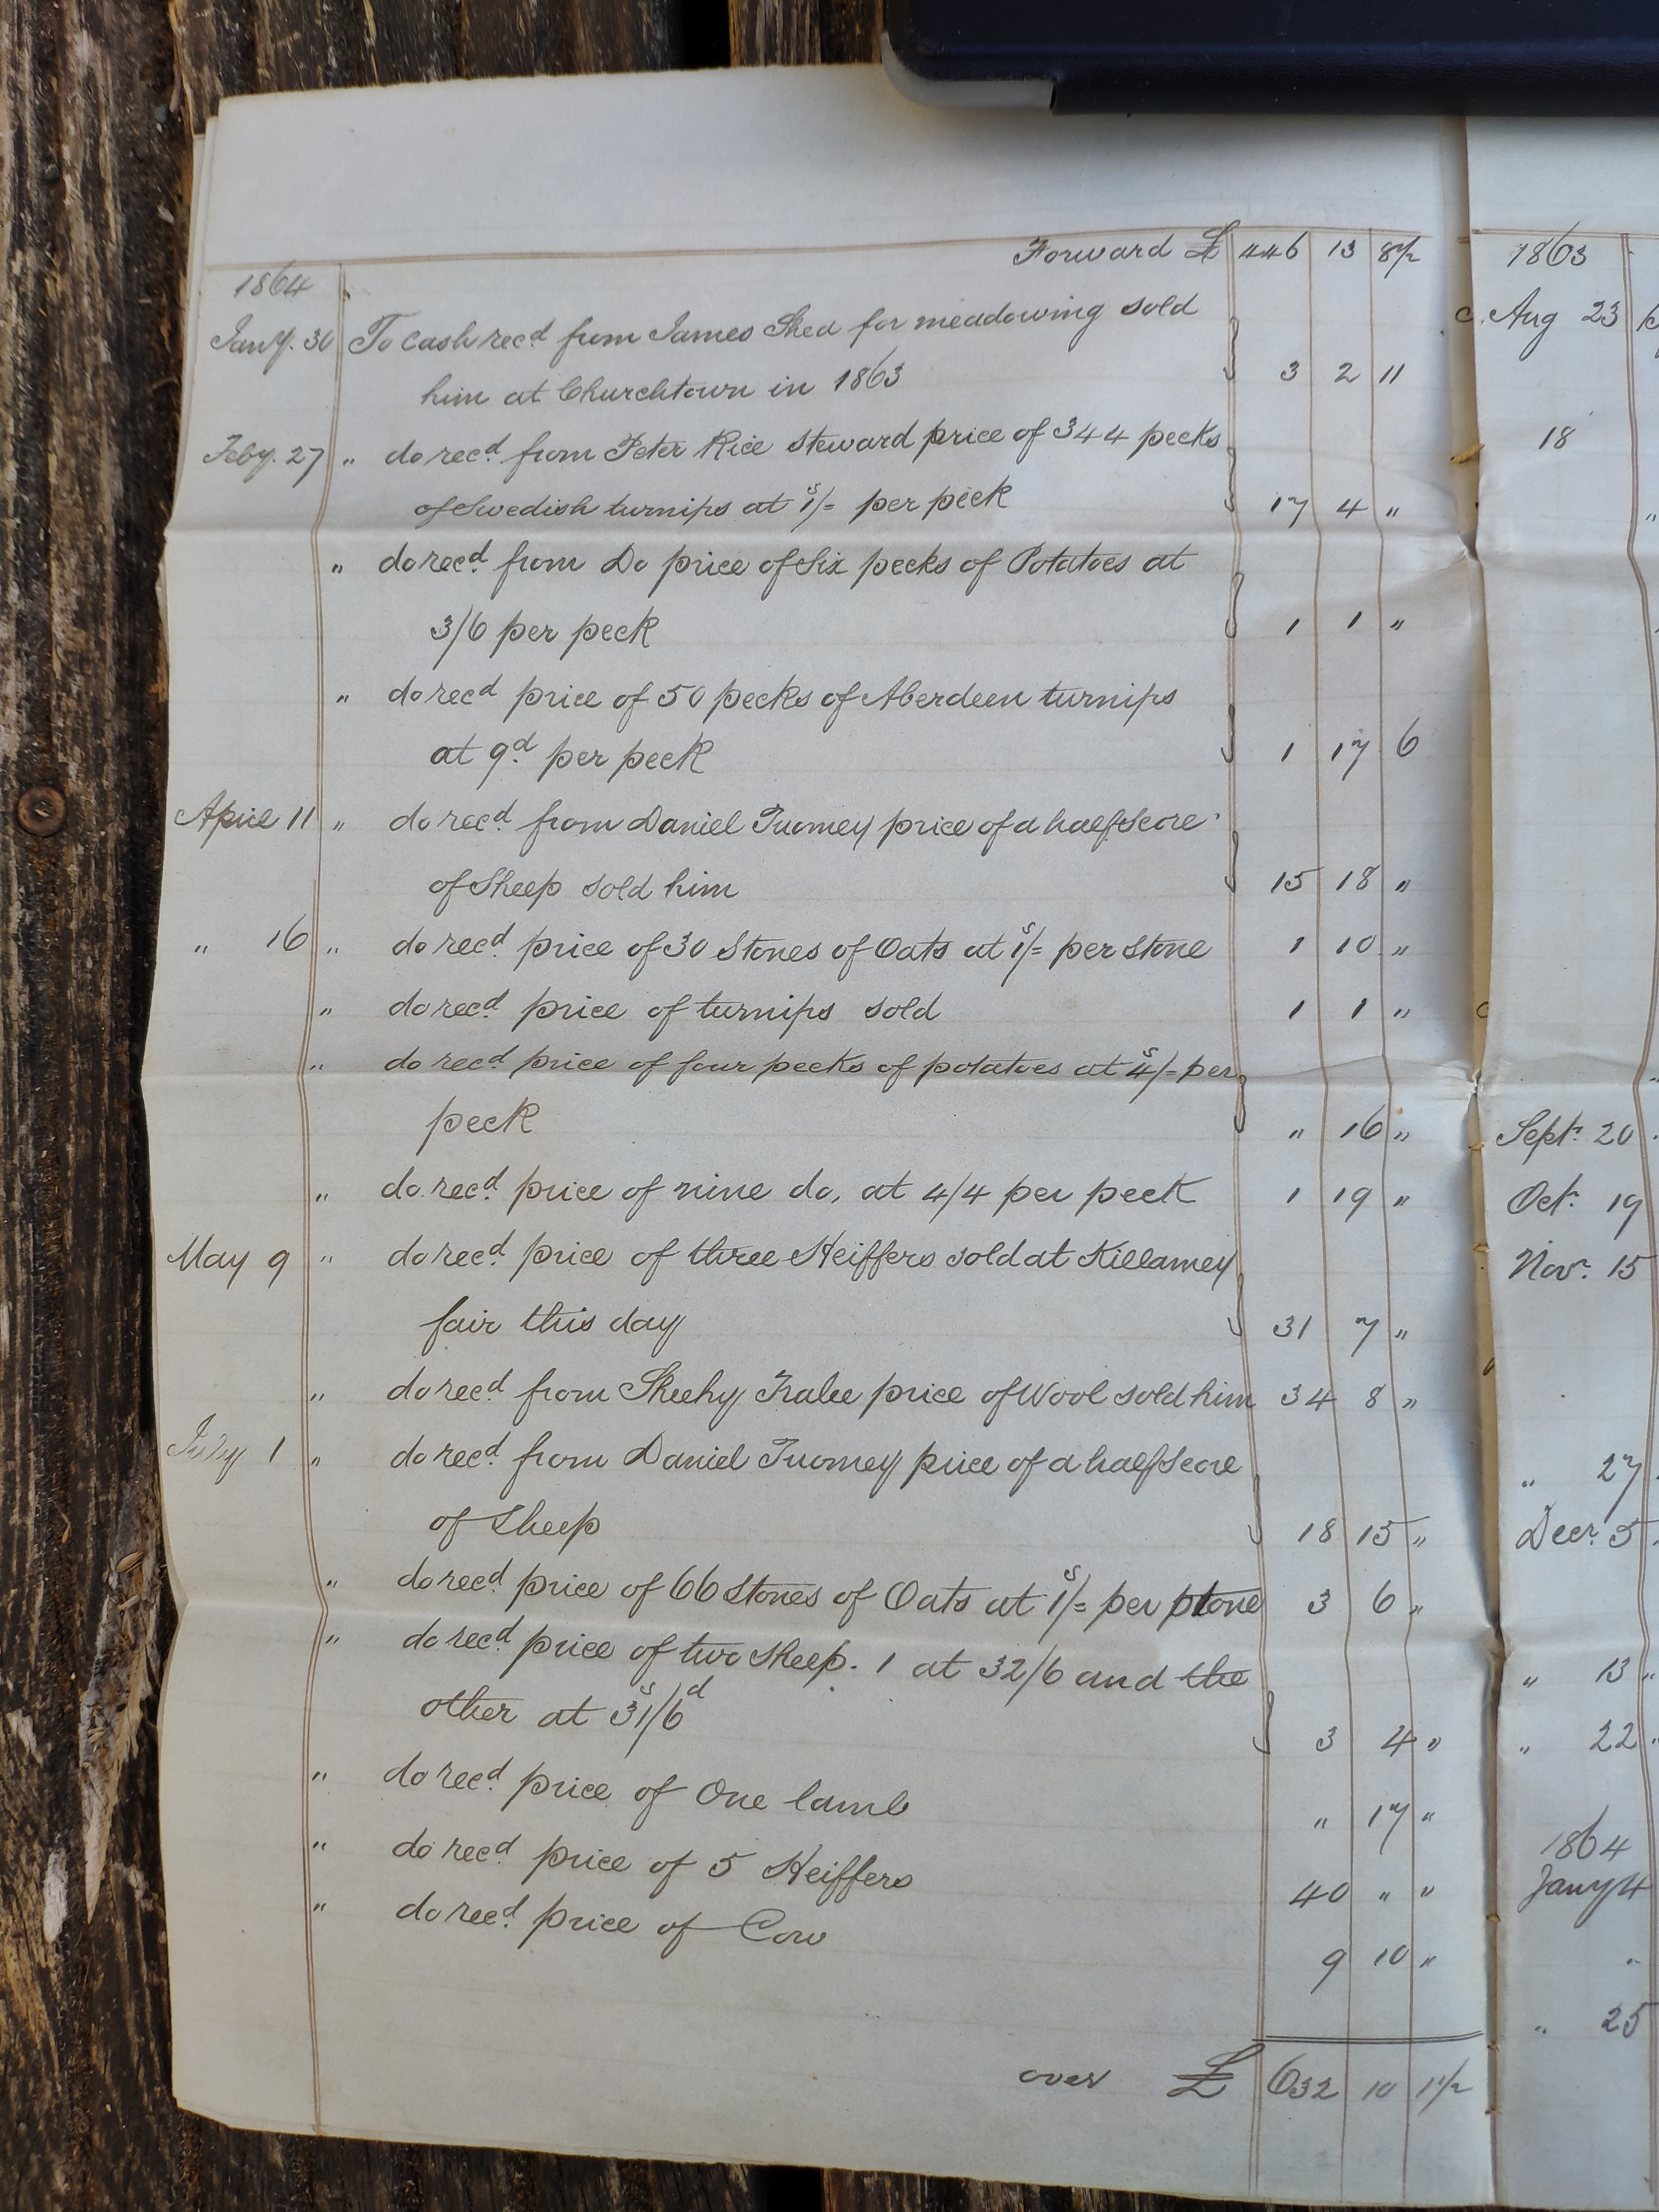 Forward £ 446 13 8½
1864
Jany. 30 To Cash recd from James Shea for meadowing sold
him at Churchtown in 1863 3 2 11
Feby. 27 " do recd from Peter Rice Steward price of 344 pecks
of Swedish turnips at 1s/= per peck 17 4 "
" do recd from Do price of Six pecks of Potatoes at
3/6 per peck 1 1 "
" do recd price of 50 pecks of Aberdeen turnips
at 9d per peck 1 17 6
April 11 " do recd from Daniel Tuomey price of a half Score
of Sheep sold him 15 18 "
" 16 " do recd price of 30 Stones of Oats at 1s/= per Stone 1 10 "
" do recd price of turnips sold 1 1 "
" do recd price of four pecks of potatoes at 4s/= per
peck " 16 "
" do recd price of nine do, at 4/4 per peck 1 19 "
May 9 " do recd price of three Heiffers sold at Killarney
fair this day 31 7 "
" do recd from Sheehy Tralee price of Wool sold him 34 8 "
July 1 " do recd from Daniel Tuomey price of a half Score
of Sheep 18 15 "
" do recd price of 66 Stones of Oats at 1s/= per ptone 3 6 "
" do recd price of two Sheep. 1 at 32/6 and the
other at 31s/6d 3 4 "
" do recd price of One lamb " 17 "
" do recd price of 5 Heiffers 40 " "
" do recd price of Cow 9 10 "
over £ 632 10 1½
1863
Aug 23
18
Sept. 20
Oct. 19
Nov. 15
" 27
Decr. 5
" 13
" 22
1864
Jany 4
" 25